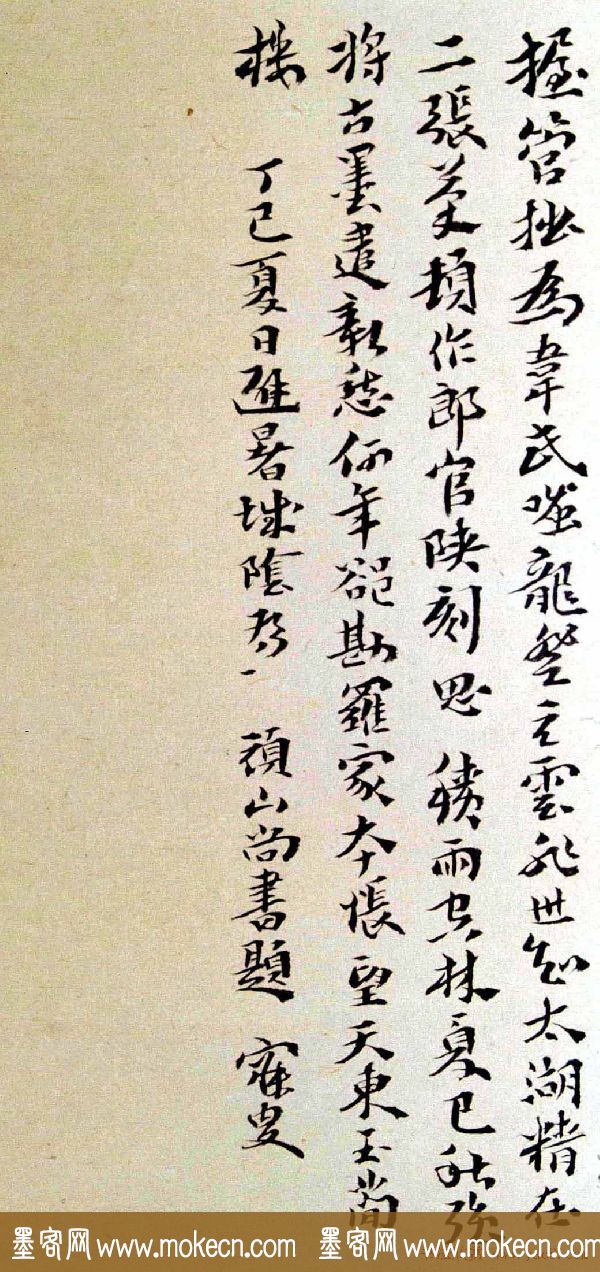 握管拙為韋氏龍雲世知太湖精在
二張頓作郎官陝刻思 積雨空林夏已秋強
將古墨遣新愁何年卻勘羅家本悵望天東玉
樓 丁巳夏日避暑城陰為 山尚書題 寐叟
墨客网 www.mokecn.com 墨客网 www.mokecn.com